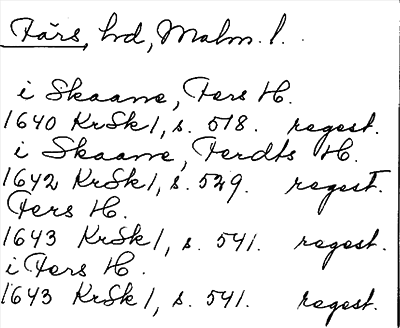 Färs, hd, Malm. l.
i Skaane, Fers H.
1640 KrSk 1, s. 518. regest.
i Skaane, Ferdts H.
1642 KrSk 1, s. 529. regest.
Fers H.
1643 KrSk 1, s. 541. regest.
i Fers H.
1643 KrSk 1, s. 541. regest.